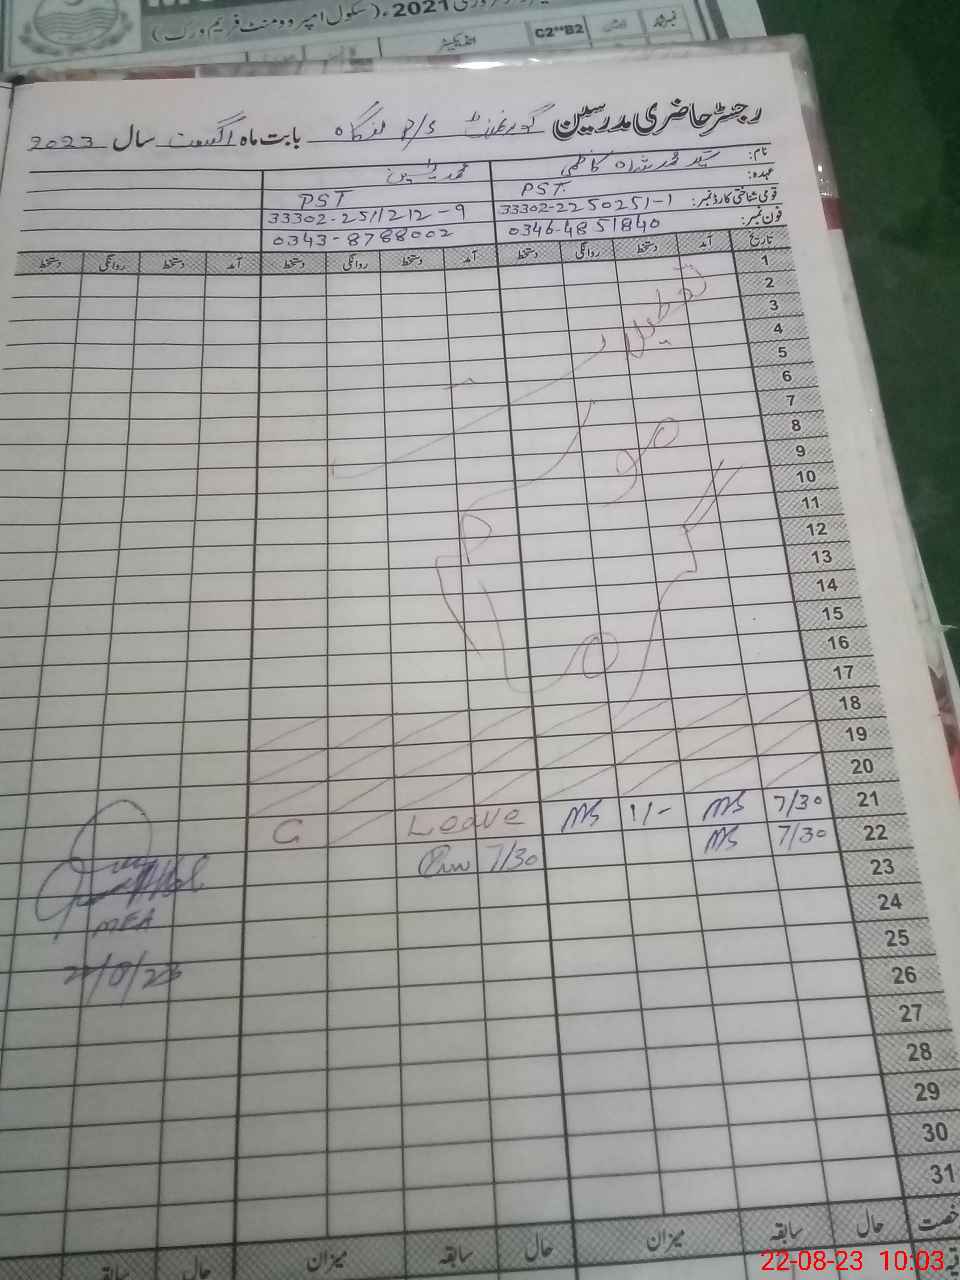 فروری 2021ء (سکول امپروومنٹ فریم ورک)
نمبر شمار C2"B2 انڈیکیٹر
رجسٹر حاضری مدرسین گورنمنٹ P/S بابت ماہ اگست سال 2023
نام: سید محمد شاہ کاظمی محمد یٰسین
عہدہ: PST. PST
قومی شناختی کارڈ نمبر: 33302-2250251-1 33302-2511212-9
فون نمبر: 0346-4851840 0343-8788002
تاریخ آمد دستخط روانگی دستخط آمد دستخط روانگی دستخط آمد دستخط روانگی دستخط
1
2
3
4
5
6
7
8
9
10
11
12
13
14
15
16
17
تعطیلات
موسم
گرما
18
19
20
21 7/30 MS 1/- MS Leave C
22 7/30 MS 7/30
23
24
25
26
27
28
29
30
31
MEA
22/8/23
حال سابقہ میزان حال سابقہ میزان حال سابقہ
22-08-23 10:03